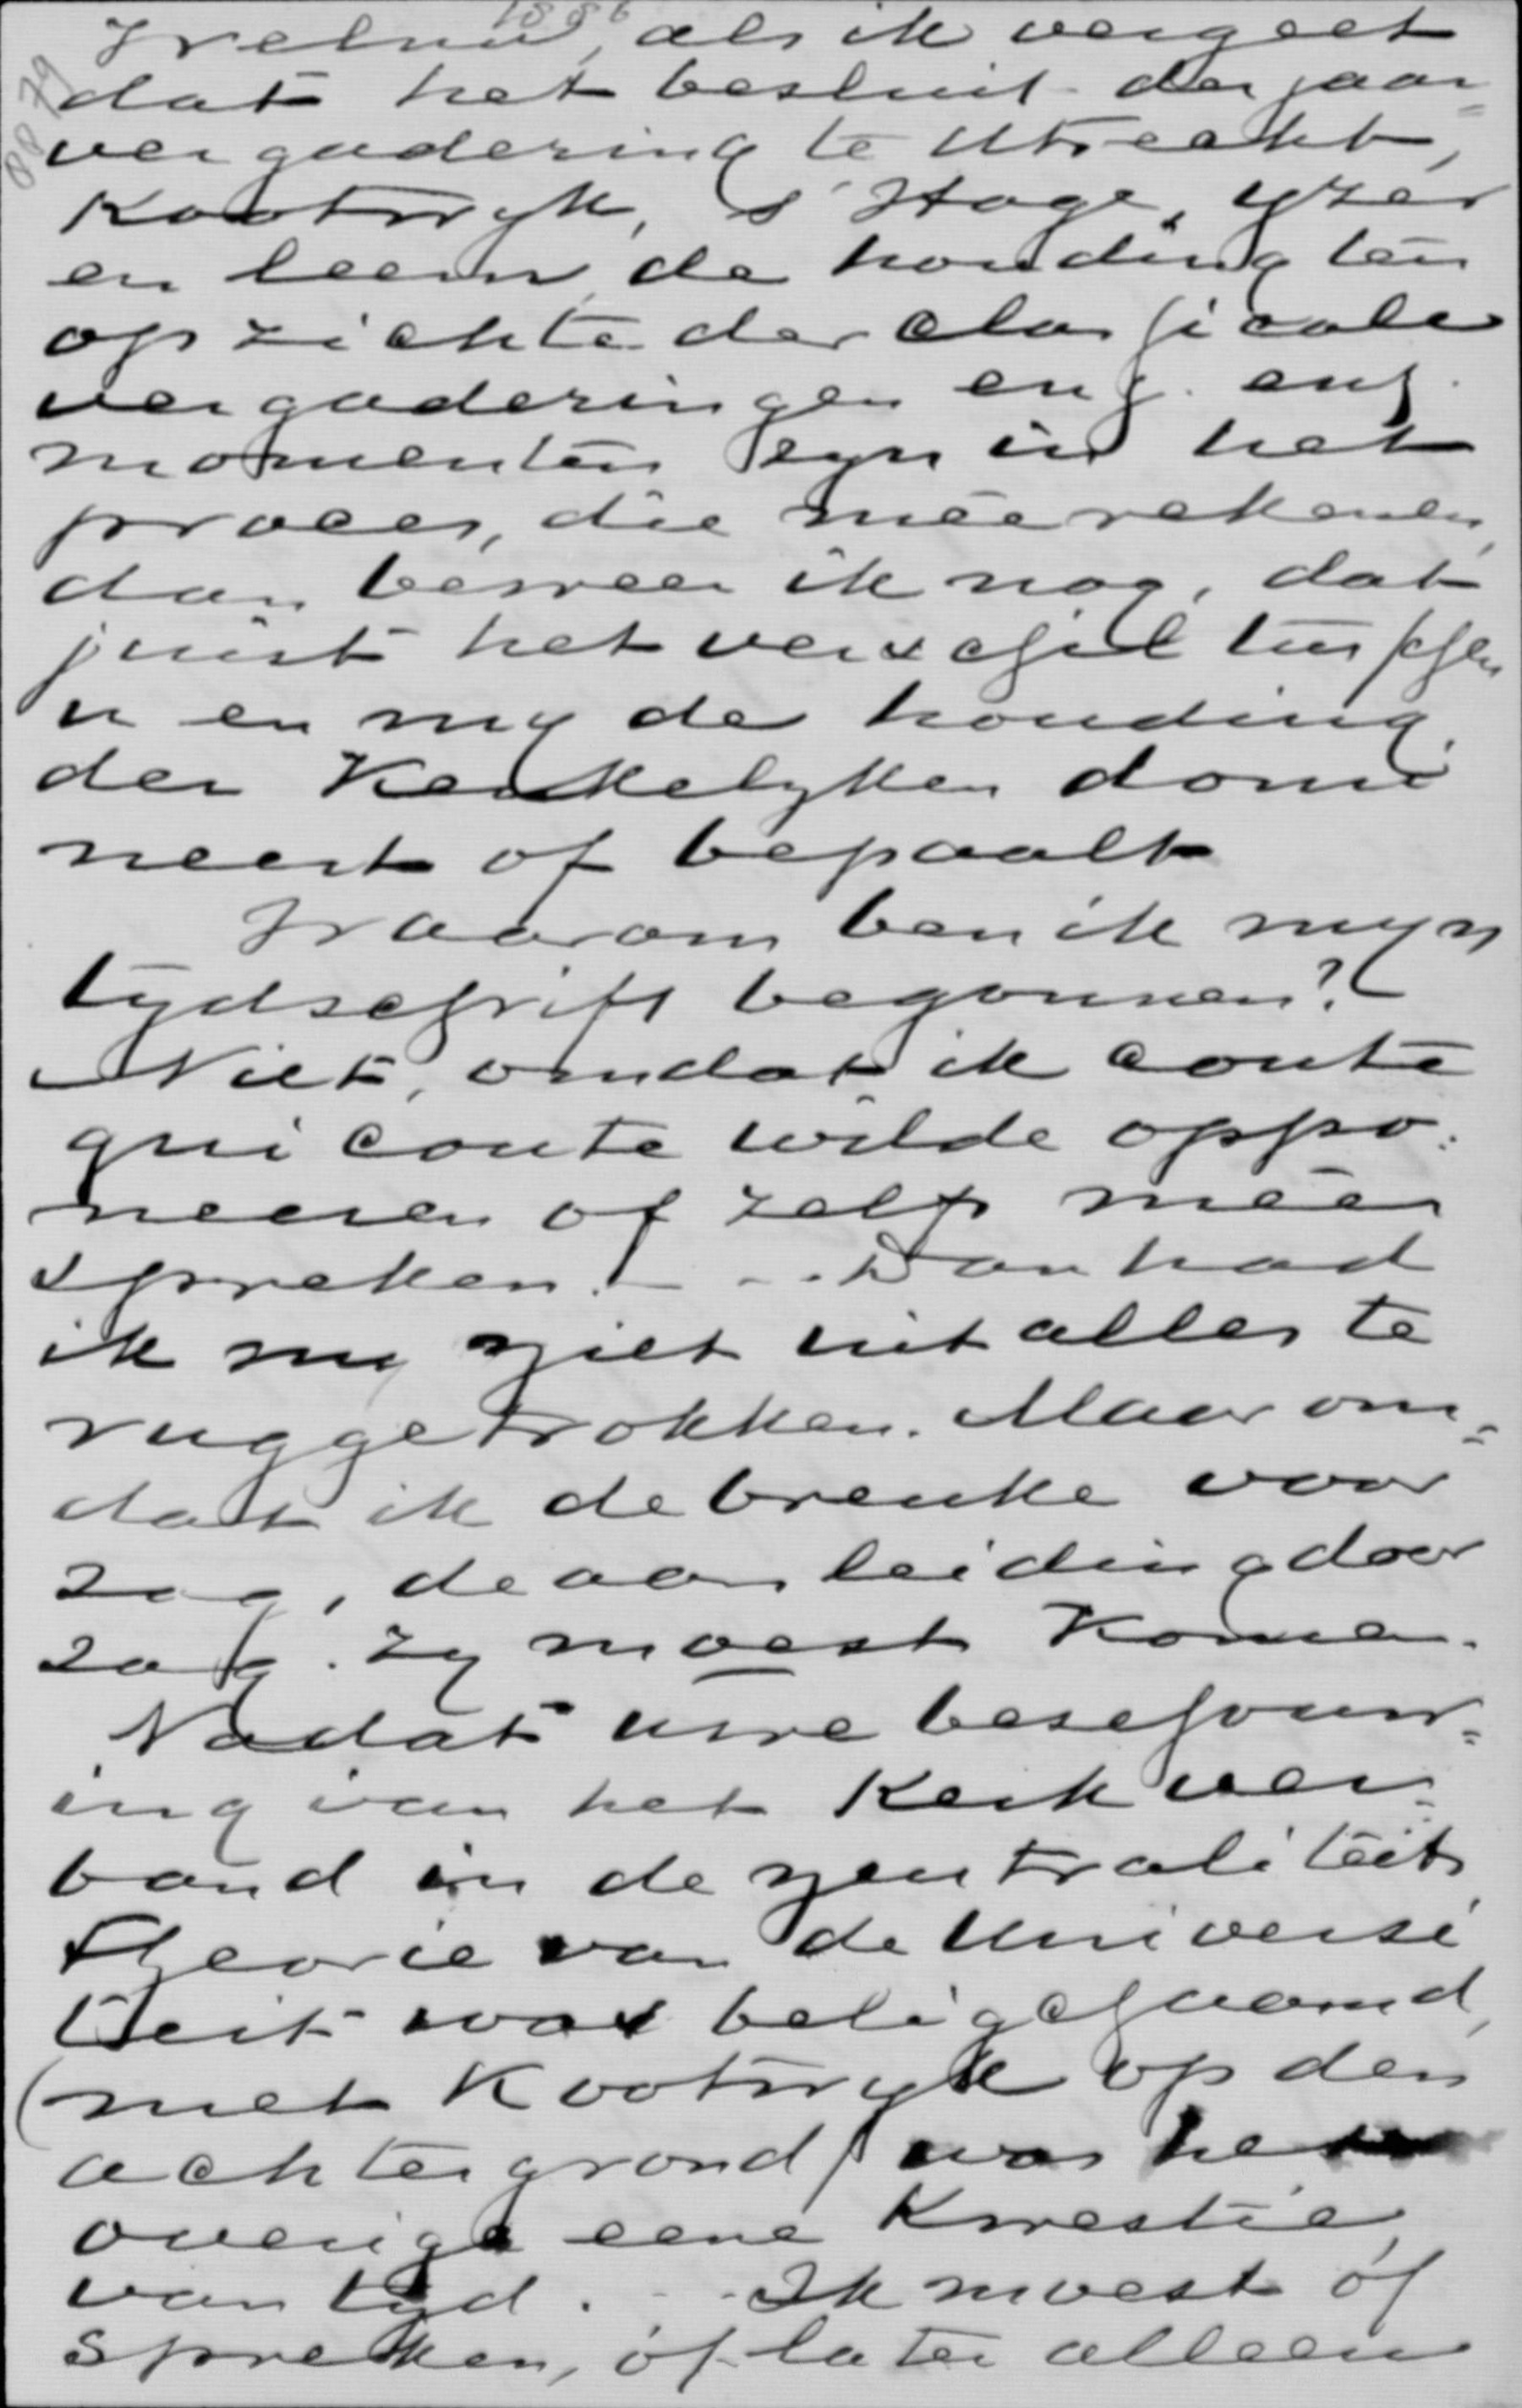 1886
8879
Welnu, als ik vergeet
dat het besluit der jaar=
vergadering te Utrecht,
Kootwyk, 's Hage, yzer
en leem, de houding ten
opzichte der classicale
vergaderingen enz. enz.
momenten zyn in het
proces, die meerekenen,
dan beweer ik nog, dat
juist het verschil tusschen
u en my de houding
der Kerkelyken domi
neert of bepaalt
Waarom ben ik myn
tydschrift begonnen?
Niet, omdat ik coute
qui coute wilde oppo:
neeren of zelfs méér
spreken! - .. Dan had
ik my niet uit alles te
ruggetrokken. Maar om=
dat ik de breuke voor
zag, de aanleiding door
zag. Zy moest Komen.
Nadat uwe beschouw=
ing van het Kerkver=
band in de neutraliteits
theorie van de Universi
teit was belichaamd,
(met Kootwyk op den
achtergrond) was het
overige eene Kwestie
van tyd. .. Ik moest óf
spreken, óf later alleen